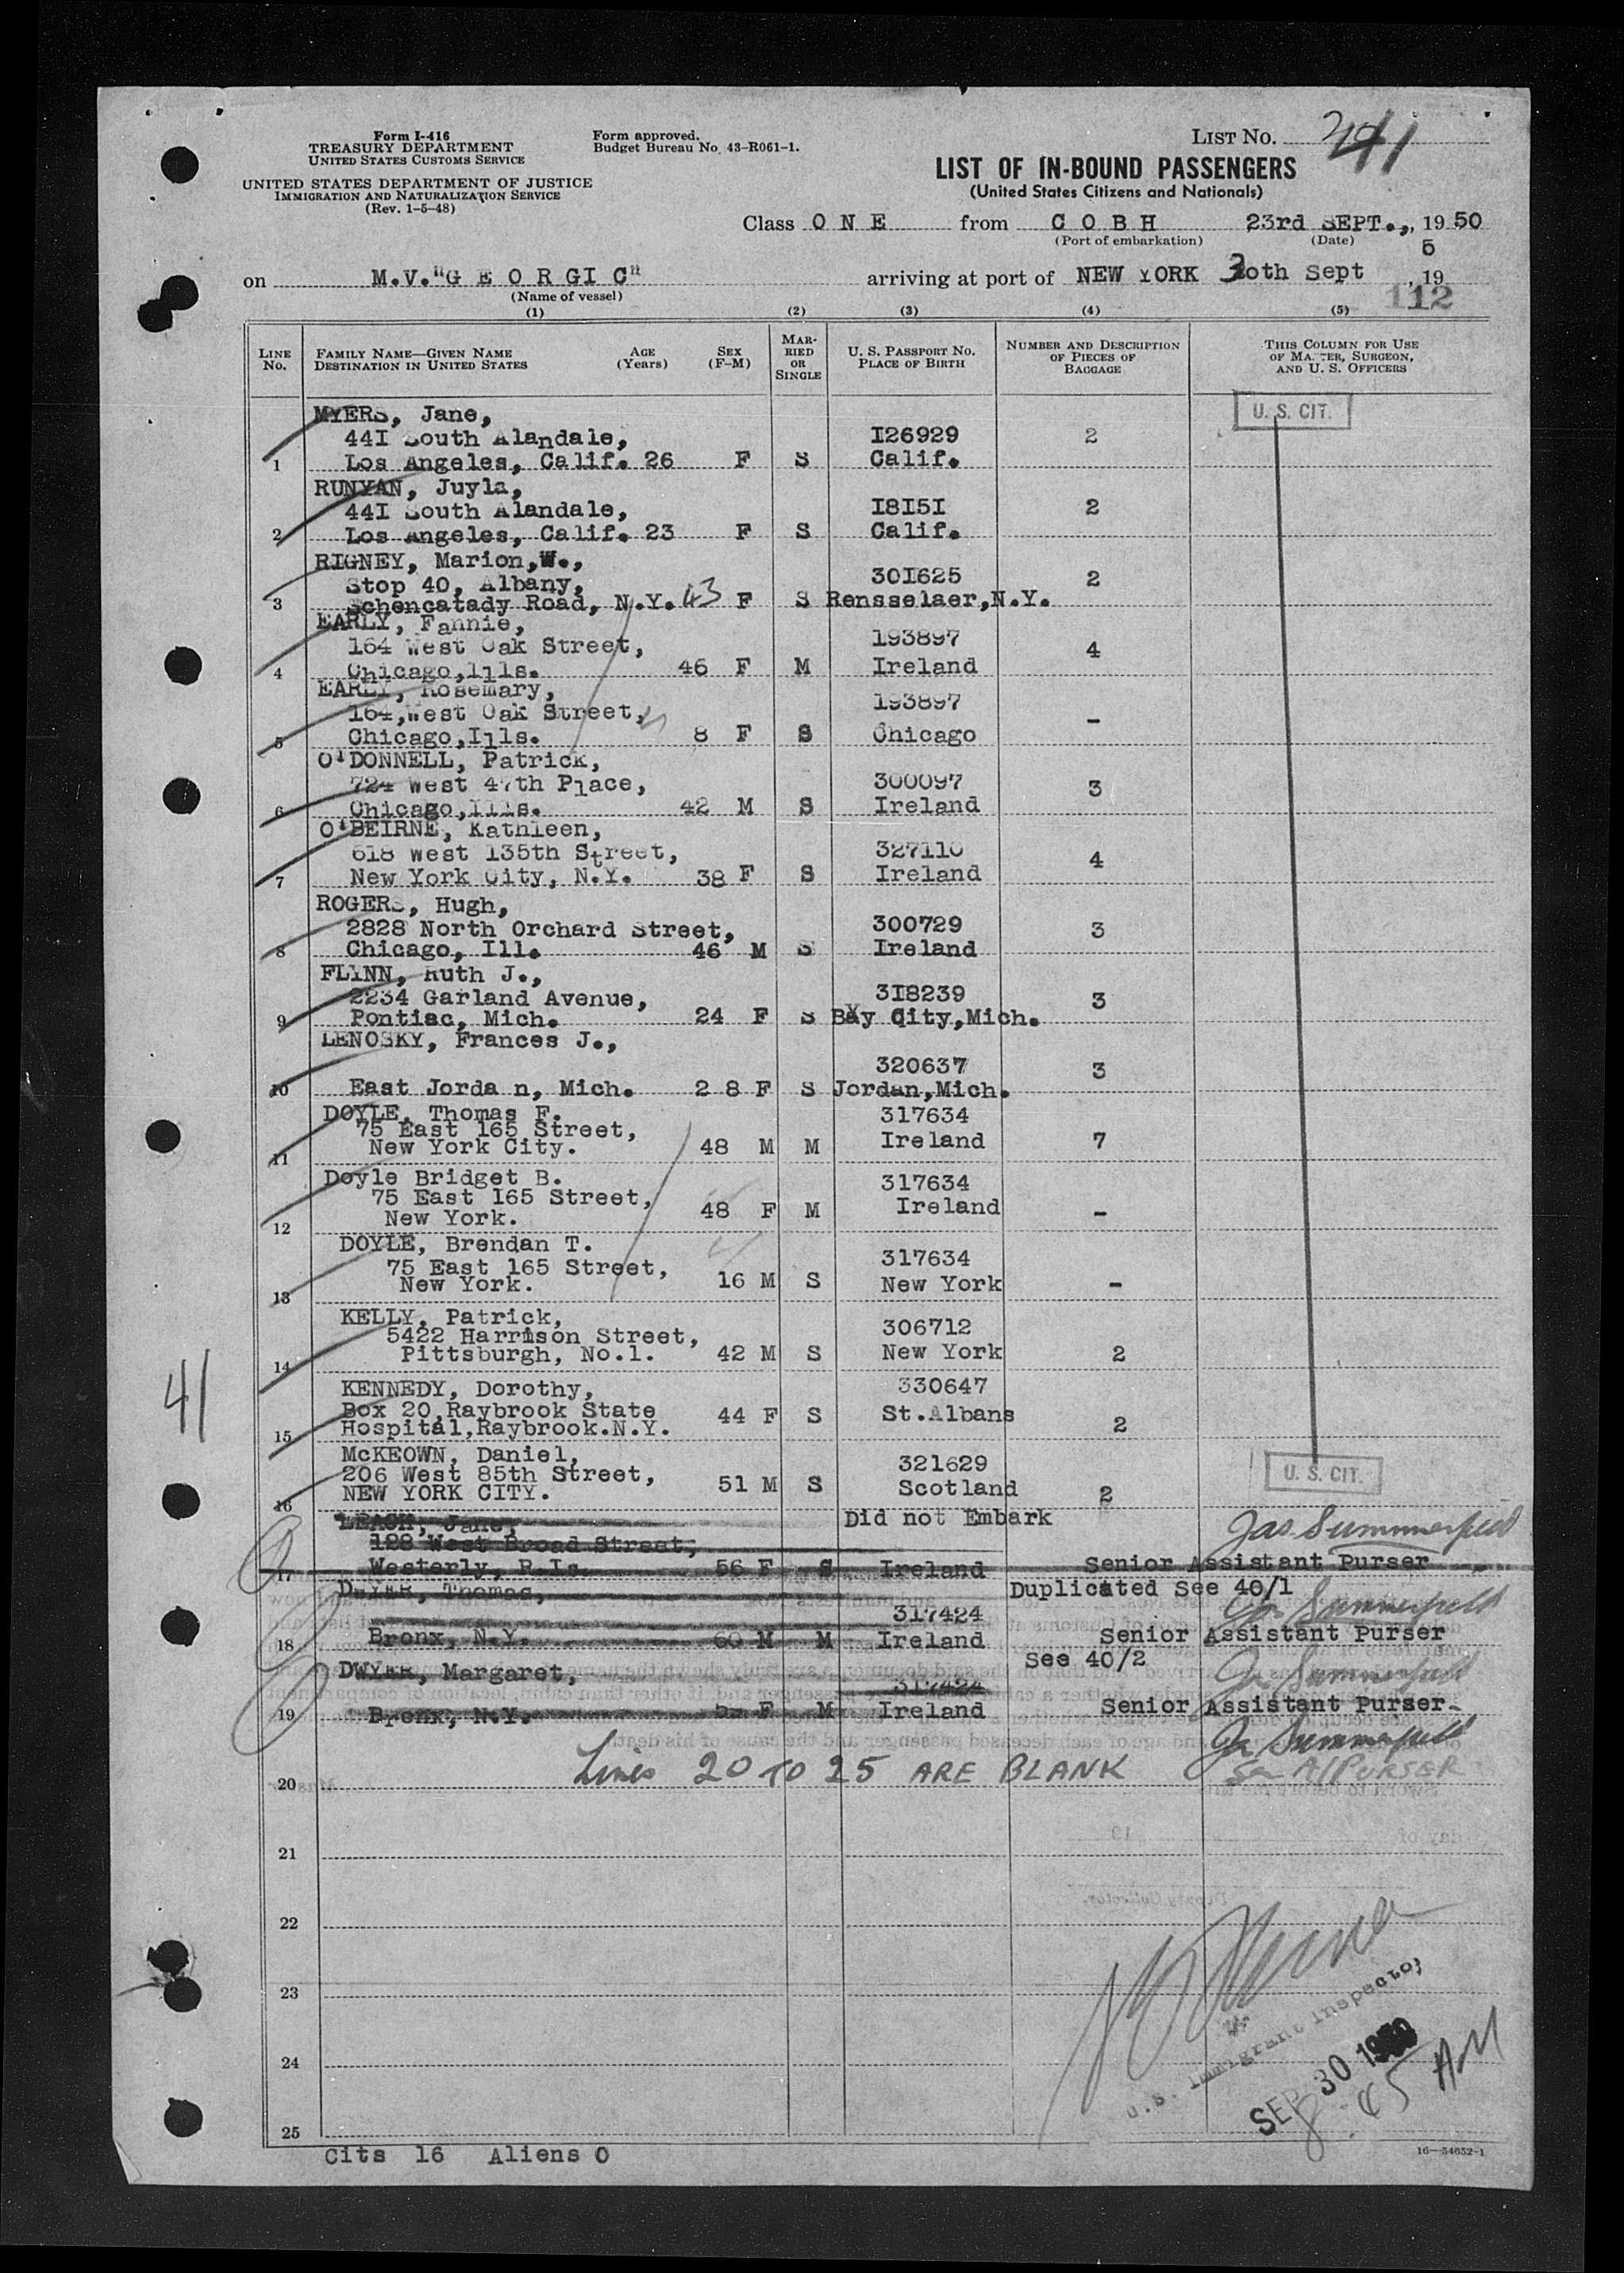 Form I-416
TREASURY DEPARTMENT
UNITED STATES CUSTOMS SERVICE
UNITED STATES DEPARTMENT OF JUSTICE
IMMIGRATION AND NATURALIZATION SERVICE
(Rev. 1-5-48)
Form approved.
Budget Bureau No. 43-R061-1.
LIST NO. 41
LIST OF IN-BOUND PASSENGERS
(United States Citizens and Nationals)
Class O N E from C O B H 23rd SEPT., 19 50
(Port of embarkation) (Date)
on M.V."G E O R G I C" arriving at port of NEW YORK 30th Sept , 19 5
(Name of vessel)
112
(1) (2) (3) (4) (5)
LINE NO. FAMILY NAME—GIVEN NAME DESTINATION IN UNITED STATES AGE (Years) SEX (F-M) MARRIED OR SINGLE U. S. PASSPORT NO. PLACE OF BIRTH NUMBER AND DESCRIPTION OF PIECES OF BAGGAGE THIS COLUMN FOR USE OF MASTER, SURGEON, AND U. S. OFFICERS
U. S. CIT.
MYERS, Jane,
44I South Alandale, I26929 2
1 Los Angeles, Calif. 26 F S Calif.
RUNYAN, Juyla,
44I South Alandale, I8I5I 2
2 Los Angeles, Calif. 23 F S Calif.
RIGNEY, Marion,W.,
Stop 40, Albany, 30I625 2
3 Schencatady Road, N.Y. 43 F S Rensselaer,N.Y.
EARLY, Fannie,
164 West Oak Street, 193897 4
4 Chicago,Ills. 46 F M Ireland
EARLY, Rosemary,
164,West Oak Street, 193897 -
5 Chicago,Ills. 8 F S Chicago
O'DONNELL, Patrick,
724 West 47th Place, 300097 3
6 Chicago,Ills. 42 M S Ireland
O'BEIRNE, Kathleen,
618 West 135th Street, 327110 4
7 New York City, N.Y. 38 F S Ireland
ROGERS, Hugh,
2828 North Orchard Street, 300729 3
8 Chicago, Ill. 46 M S Ireland
FLINN, Ruth J.,
2234 Garland Avenue, 3I8239 3
9 Pontiac, Mich. 24 F S Bay City,Mich.
LENOSKY, Frances J.,
320637 3
10 East Jorda n, Mich. 2 8 F S Jordan,Mich.
DOYLE, Thomas F. 317634
75 East 165 Street, Ireland 7
11 New York City. 48 M M
Doyle Bridget B. 317634
75 East 165 Street, Ireland
12 New York. 48 F M -
DOYLE, Brendan T. 317634
75 East 165 Street,
13 New York. 16 M S New York -
KELLY, Patrick, 306712
5422 Harrison Street,
14 Pittsburgh, No.1. 42 M S New York 2
KENNEDY, Dorothy, 330647
Box 20,Raybrook State 44 F S St.Albans
15 Hospital,Raybrook.N.Y. 2
McKEOWN, Daniel, 321629
206 West 85th Street, 51 M S Scotland
16 NEW YORK CITY. 2
U. S. CIT.
41
LEACH, Jane, Did not Embark Jas Summerfield
128 West Broad Street,
17 Westerly, R.Is. 56 F S Ireland Senior Assistant Purser
DWYER, Thomas, Duplicated See 40/1
317424 Jas Summerfield
18 Bronx, N.Y. 60 M M Ireland Senior Assistant Purser
DWYER, Margaret, See 40/2 Jas Summerfield
317424
19 Bronx, N.Y. F M Ireland Senior Assistant Purser
Jas Summerfield
20 Lines 20 TO 25 ARE BLANK Sen A/PURSER
21
22
23
24
25
U.S. Immigrant Inspector
SEP 30 1950
8:45 AM
Cits 16 Aliens 0
16—54652-1